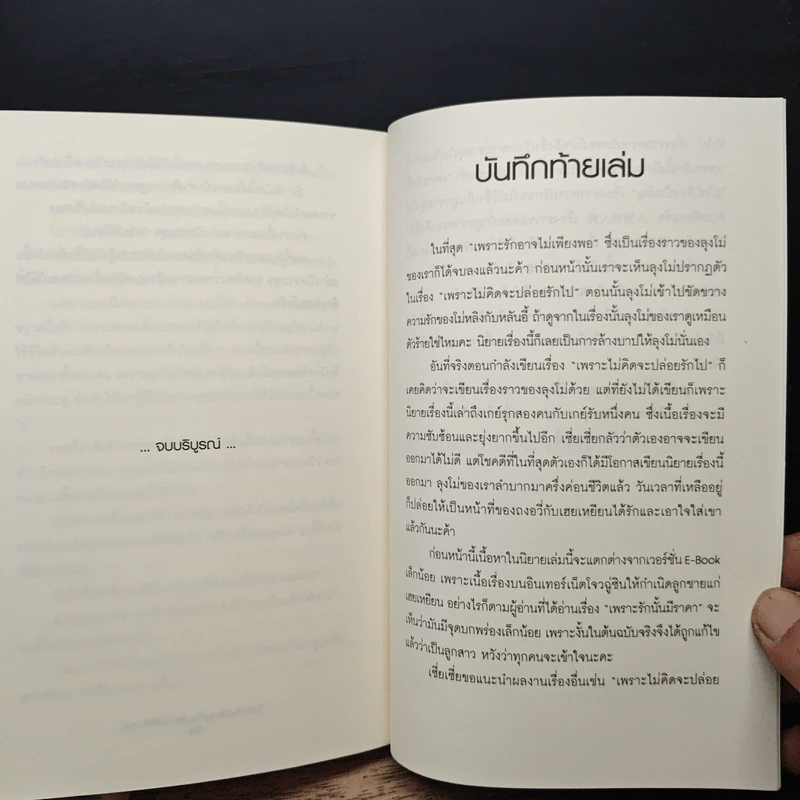 ... จบบริบูรณ์ ...
บันทึกท้ายเล่ม
ในที่สุด “เพราะรักอาจไม่เพียงพอ” ซึ่งเป็นเรื่องราวของลุงโม่
ของเราก็ได้จบลงแล้วนะค้า ก่อนหน้านั้นเราจะเห็นลุงโม่ปรากฏตัว
ในเรื่อง “เพราะไม่คิดจะปล่อยรักไป” ตอนนั้นลุงโม่เข้าไปขัดขวาง
ความรักของโม่หลิงกับหลันอี้ ถ้าดูจากในเรื่องนั้นลุงโม่ของเราดูเหมือน
ตัวร้ายใช่ไหมคะ นิยายเรื่องนี้ก็เลยเป็นการล้างบาปให้ลุงโม่นั่นเอง
อันที่จริงตอนกำลังเขียนเรื่อง “เพราะไม่คิดจะปล่อยรักไป” ก็
เคยคิดว่าจะเขียนเรื่องราวของลุงโม่ด้วย แต่ที่ยังไม่ได้เขียนก็เพราะ
นิยายเรื่องนี้เล่าถึงเกย์รุกสองคนกับเกย์รับหนึ่งคน ซึ่งเนื้อเรื่องจะมี
ความซับซ้อนและยุ่งยากขึ้นไปอีก เซี่ยเซี่ยกลัวว่าตัวเองอาจจะเขียน
ออกมาได้ไม่ดี แต่โชคดีที่ในที่สุดตัวเองก็ได้มีโอกาสเขียนนิยายเรื่องนี้
ออกมา ลุงโม่ของเราลำบากมาครึ่งค่อนชีวิตแล้ว วันเวลาที่เหลืออยู่
ก็ปล่อยให้เป็นหน้าที่ของถงอวี่กับเฮยเหยียนได้รักและเอาใจใส่เขา
แล้วกันนะค้า
ก่อนหน้านี้เนื้อหาในนิยายเล่มนี้จะแตกต่างจากเวอร์ชั่น E-Book
เล็กน้อย เพราะเนื้อเรื่องบนอินเทอร์เน็ตโจวฉู่ซินให้กำเนิดลูกชายแก่
เฮยเหยียน อย่างไรก็ตามผู้อ่านที่ได้อ่านเรื่อง “เพราะรักนั้นมีราคา” จะ
เห็นว่ามันมีจุดบกพร่องเล็กน้อย เพราะงั้นในต้นฉบับจริงจึงได้ถูกแก้ไข
แล้วว่าเป็นลูกสาว หวังว่าทุกคนจะเข้าใจนะคะ
เซี่ยเซี่ยขอแนะนำผลงานเรื่องอื่นเช่น “เพราะไม่คิดจะปล่อย